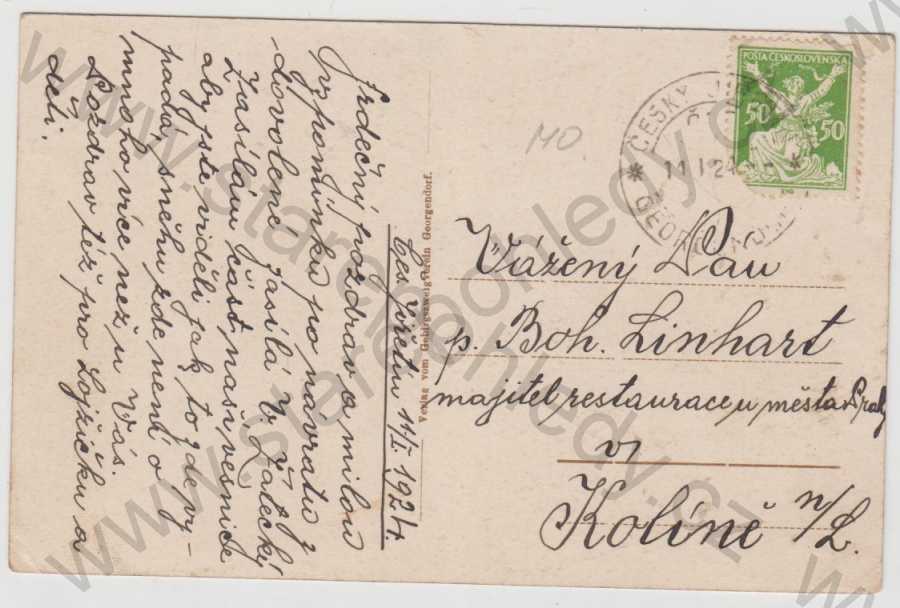 Čes. Jiřetín 11/I. 1924.
Srdečný pozdrav a milou
vzpomínku po návratu z
dovolené zasílá V. Žalecký
Zasílám část naší vesnice
aby jste viděli jak to zde vy-
padá, sněhu zde není o
mnoho více než u Vás.
Pozdrav též pro Lojzičku a
děti.
Verlag vom Gebirgszweigverein Georgendorf.
MO
POŠTA ČESKOSLOVENSKA
50 50
* ČESKÝ *
11 I 24
GEORG
Vážený Pan
p. Boh. Linhart
majitel restaurace u města Prahy
v
Kolíně n/L.
www.stareppohlednice.cz